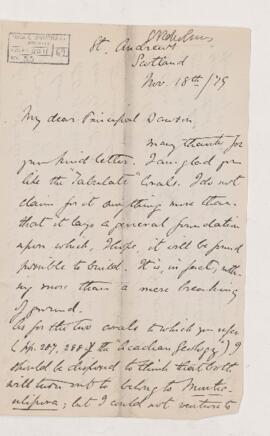 Nicholson
St. Andrews
Scotland
Nov. 18th /79
My dear Principal Dawson,
many thanks for
your kind letter. I am glad you
like the "Tabulate" Corals. I do not
claim for it anything more than
that it lays a general foundation
upon which, I hope, it will be found
possible to build. It is, in fact, noth-
ing more than a mere breaking
of ground.
As for the two corals to which you refer
(pp. 287, 288 of the "Acadian Geology") I
should be disposed to think that both
will turn out to belong to Monti-
culipora; but I could not venture to